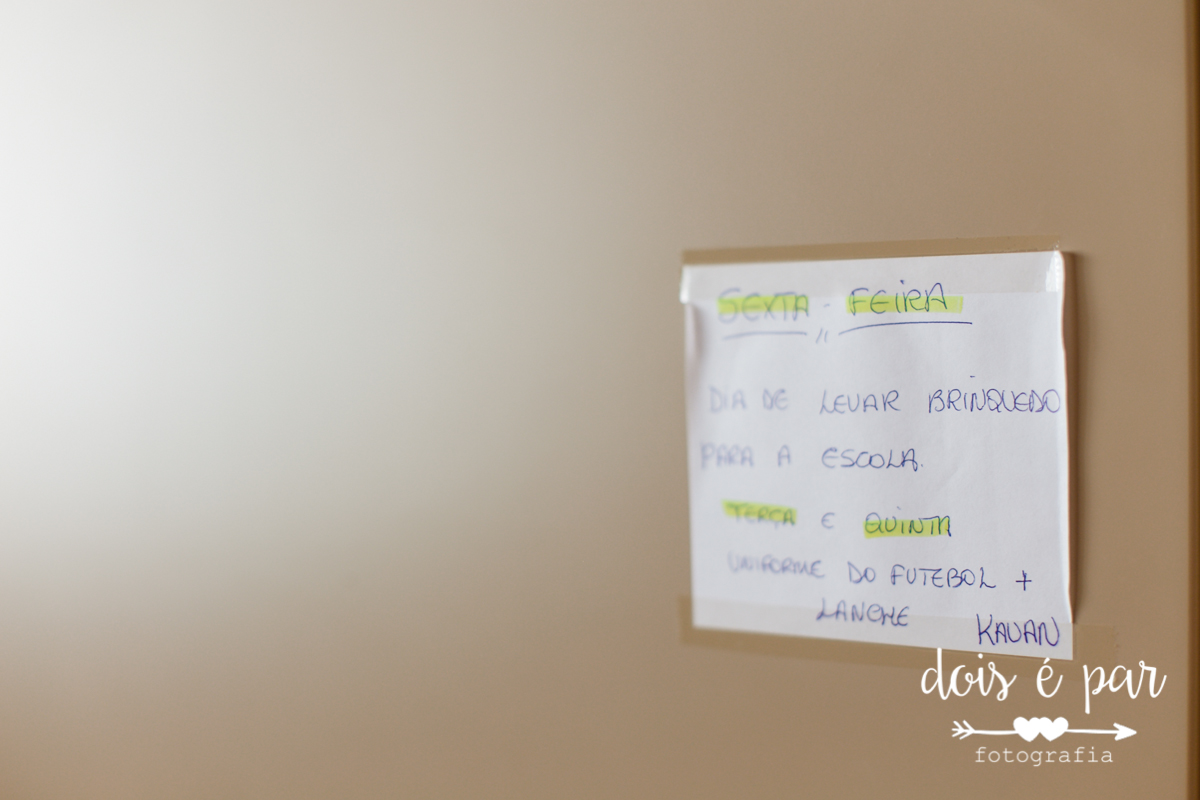 SEXTA - FEIRA
DIA DE LEVAR BRINQUEDO
PARA A ESCOLA.
TERÇA E QUINTA
UNIFORME DO FUTEBOL +
LANCHE
KAUAN
dois é par
fotografia